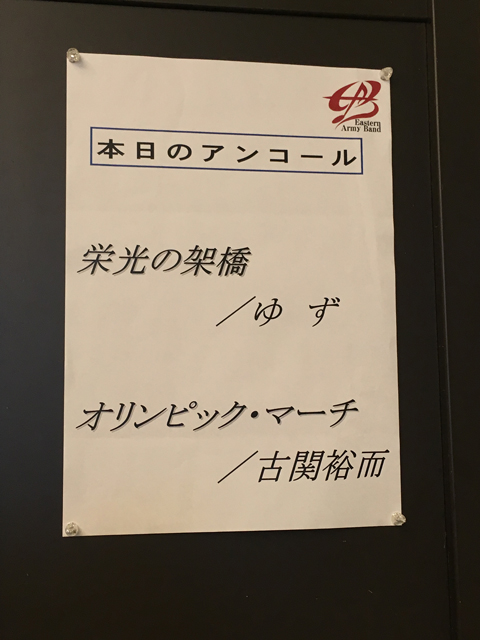 Eastern
Army Band
本日のアンコール
栄光の架橋
／ゆ ず
オリンピック・マーチ
／古関裕而